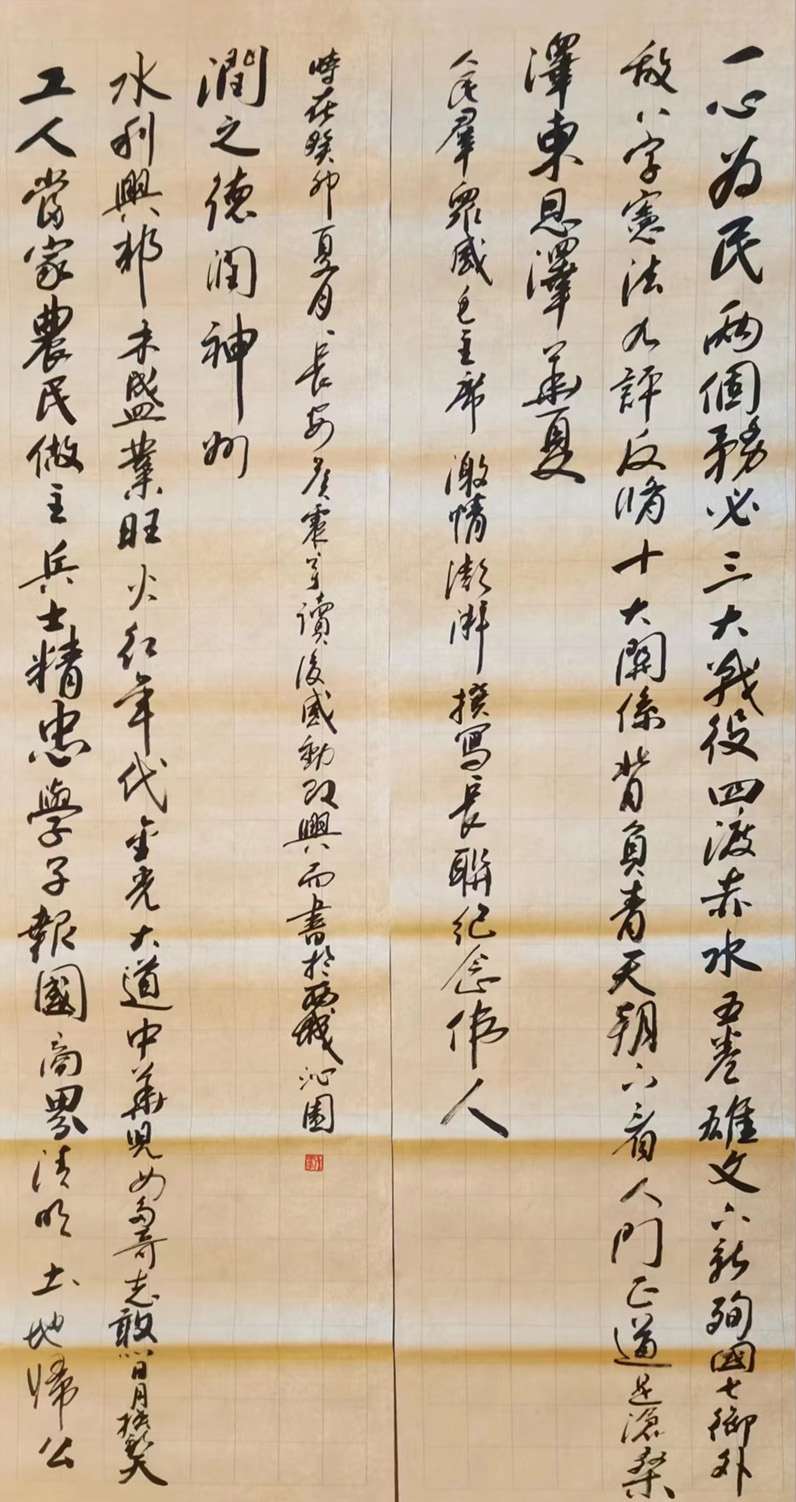 一心为民两個務必三大戰役四渡赤水五卷雄文六親殉國七御外
敌八字憲法九評反脩十大関係背負青天朝下看人間正道是滄桑
澤東恩澤華夏
人民羣眾感毛主席激情澎湃撰寫長聯紀念伟人
工人當家農民做主兵士精忠學子報國商界清明土地歸公
水利興邦末盛業旺火红年代金光大道中華児女多奇志敢일日月換新天
潤之德润神州
時在癸卯夏月長安震讀後感動即興而書於西城沁園